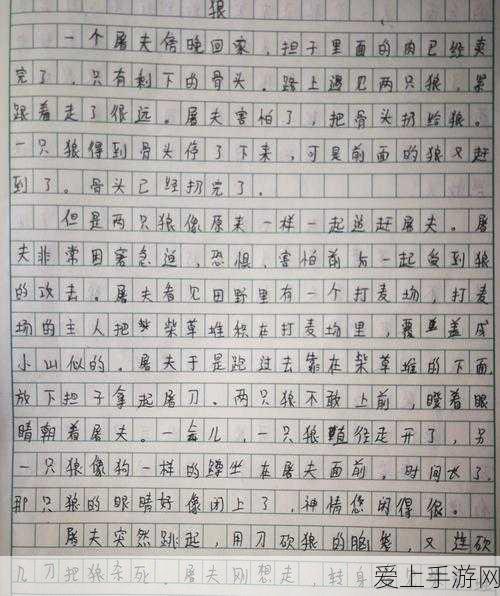 狼
一个屠夫傍晚回家，担子里面的肉已经卖
完了，只有剩下的骨头。路上遇见两只狼，紧
跟着走了很远。屠夫害怕了，把骨头扔给狼。
一只狼得到骨头停了下来，可是前面的狼又赶
到了。骨头已经扔完了。
但是两只狼像原来一样一起追赶屠夫。屠
夫非常困窘急迫，恐惧，害怕前后一起受到狼
的攻击。屠夫看见田野里有一个打麦场，打麦
场的主人把柴草堆积在打麦场里，覆盖成
小山似的。屠夫于是跑过去靠在柴草堆的下面，
放下担子拿起屠刀。两只狼不敢上前，瞪着眼
睛朝着屠夫。一会儿，一只狼径走开了，另
一只狼像狗一样的蹲坐在屠夫面前。时间长了，
那只狼的眼睛好像闭上了，神情悠闲得很。
屠夫突然跳起，用刀砍狼的脑袋，又连砍
几刀把狼杀死。屠夫刚想走，转身
爱上手游网